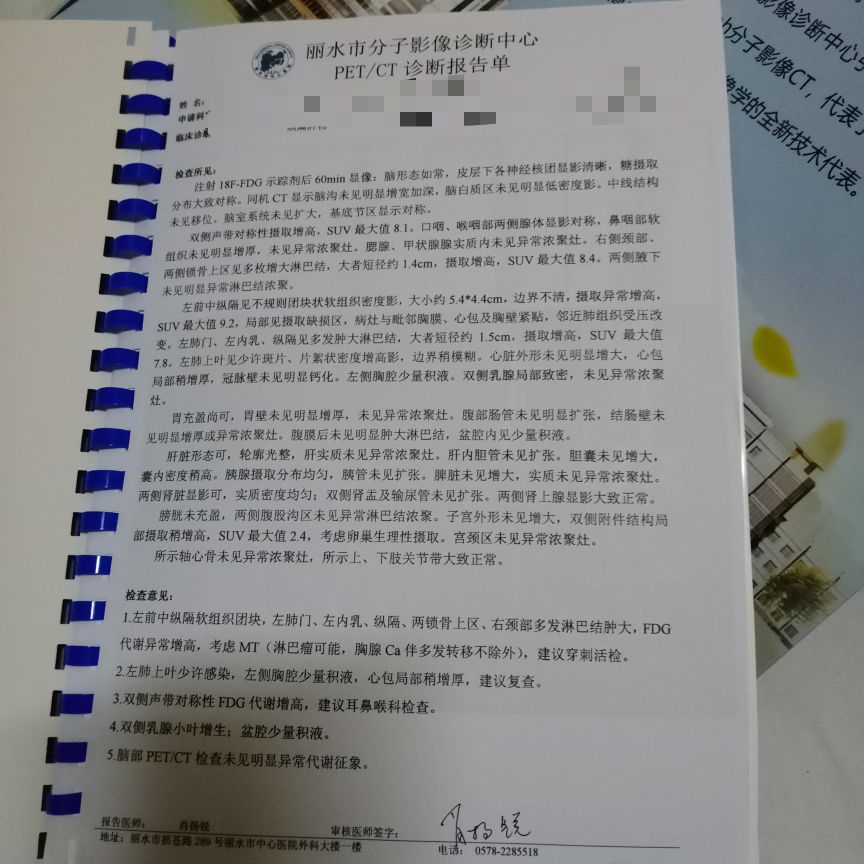 丽水市分子影像诊断中心
PET/CT 诊断报告单
姓 名：
申请科
临床诊
检查所见：
注射 18F-FDG 示踪剂后 60min 显像：脑形态如常，皮层下各神经核团显影清晰，糖摄取
分布大致对称。同机 CT 显示脑沟未见明显增宽加深，脑白质区未见明显低密度影。中线结构
未见移位。脑室系统未见扩大，基底节区显示对称。
双侧声带对称性摄取增高，SUV 最大值 8.1。口咽、喉咽部两侧腺体显影对称，鼻咽部软
组织未见明显增厚，未见异常浓聚灶。腮腺、甲状腺腺实质内未见异常浓聚灶。右侧颈部、
两侧锁骨上区见多枚增大淋巴结，大者短径约 1.4cm，摄取增高，SUV 最大值 8.4。两侧腋下
未见明显异常淋巴结浓聚。
左前中纵隔见不规则团块状软组织密度影，大小约 5.4*4.4cm，边界不清，摄取异常增高，
SUV 最大值 9.2，局部见摄取缺损区，病灶与毗邻胸膜、心包及胸壁紧贴，邻近肺组织受压改
变。左肺门、左内乳、纵隔见多发肿大淋巴结，大者短径约 1.5cm，摄取增高，SUV 最大值
7.8。左肺上叶见少许斑片、片絮状密度增高影，边界稍模糊。心脏外形未见明显增大，心包
局部稍增厚，冠脉壁未见明显钙化。左侧胸腔少量积液。双侧乳腺局部致密，未见异常浓聚
灶。
胃充盈尚可，胃壁未见明显增厚，未见异常浓聚灶。腹部肠管未见明显扩张，结肠壁未
见明显增厚或异常浓聚灶。腹膜后未见明显肿大淋巴结，盆腔内见少量积液。
肝脏形态可，轮廓光整，肝实质未见异常浓聚灶。肝内胆管未见扩张。胆囊未见增大，
囊内密度稍高。胰腺摄取分布均匀，胰管未见扩张。脾脏未见增大，实质未见异常浓聚灶。
两侧肾脏显影可，实质密度均匀；双侧肾盂及输尿管未见扩张。两侧肾上腺显影大致正常。
膀胱未充盈，两侧腹股沟区未见异常淋巴结浓聚。子宫外形未见增大，双侧附件结构局
部摄取稍增高，SUV 最大值 2.4，考虑卵巢生理性摄取。宫颈区未见异常浓聚灶。
所示轴心骨未见异常浓聚灶，所示上、下肢关节带大致正常。
检查意见：
1.左前中纵隔软组织团块，左肺门、左内乳、纵隔、两锁骨上区、右颈部多发淋巴结肿大，FDG
代谢异常增高，考虑 MT（淋巴瘤可能，胸腺 Ca 伴多发转移不除外），建议穿刺活检。
2.左肺上叶少许感染，左侧胸腔少量积液，心包局部稍增厚，建议复查。
3.双侧声带对称性 FDG 代谢增高，建议耳鼻喉科检查。
4.双侧乳腺小叶增生；盆腔少量积液。
5.脑部 PET/CT 检查未见明显异常代谢征象。
报告医师： 肖扬锐 审核医师签字：
地址：丽水市括苍路 289 号丽水市中心医院外科大楼一楼 电话： 0578-2285518
影像诊断中心
分子影像CT，代表
像学的全新技术代表。